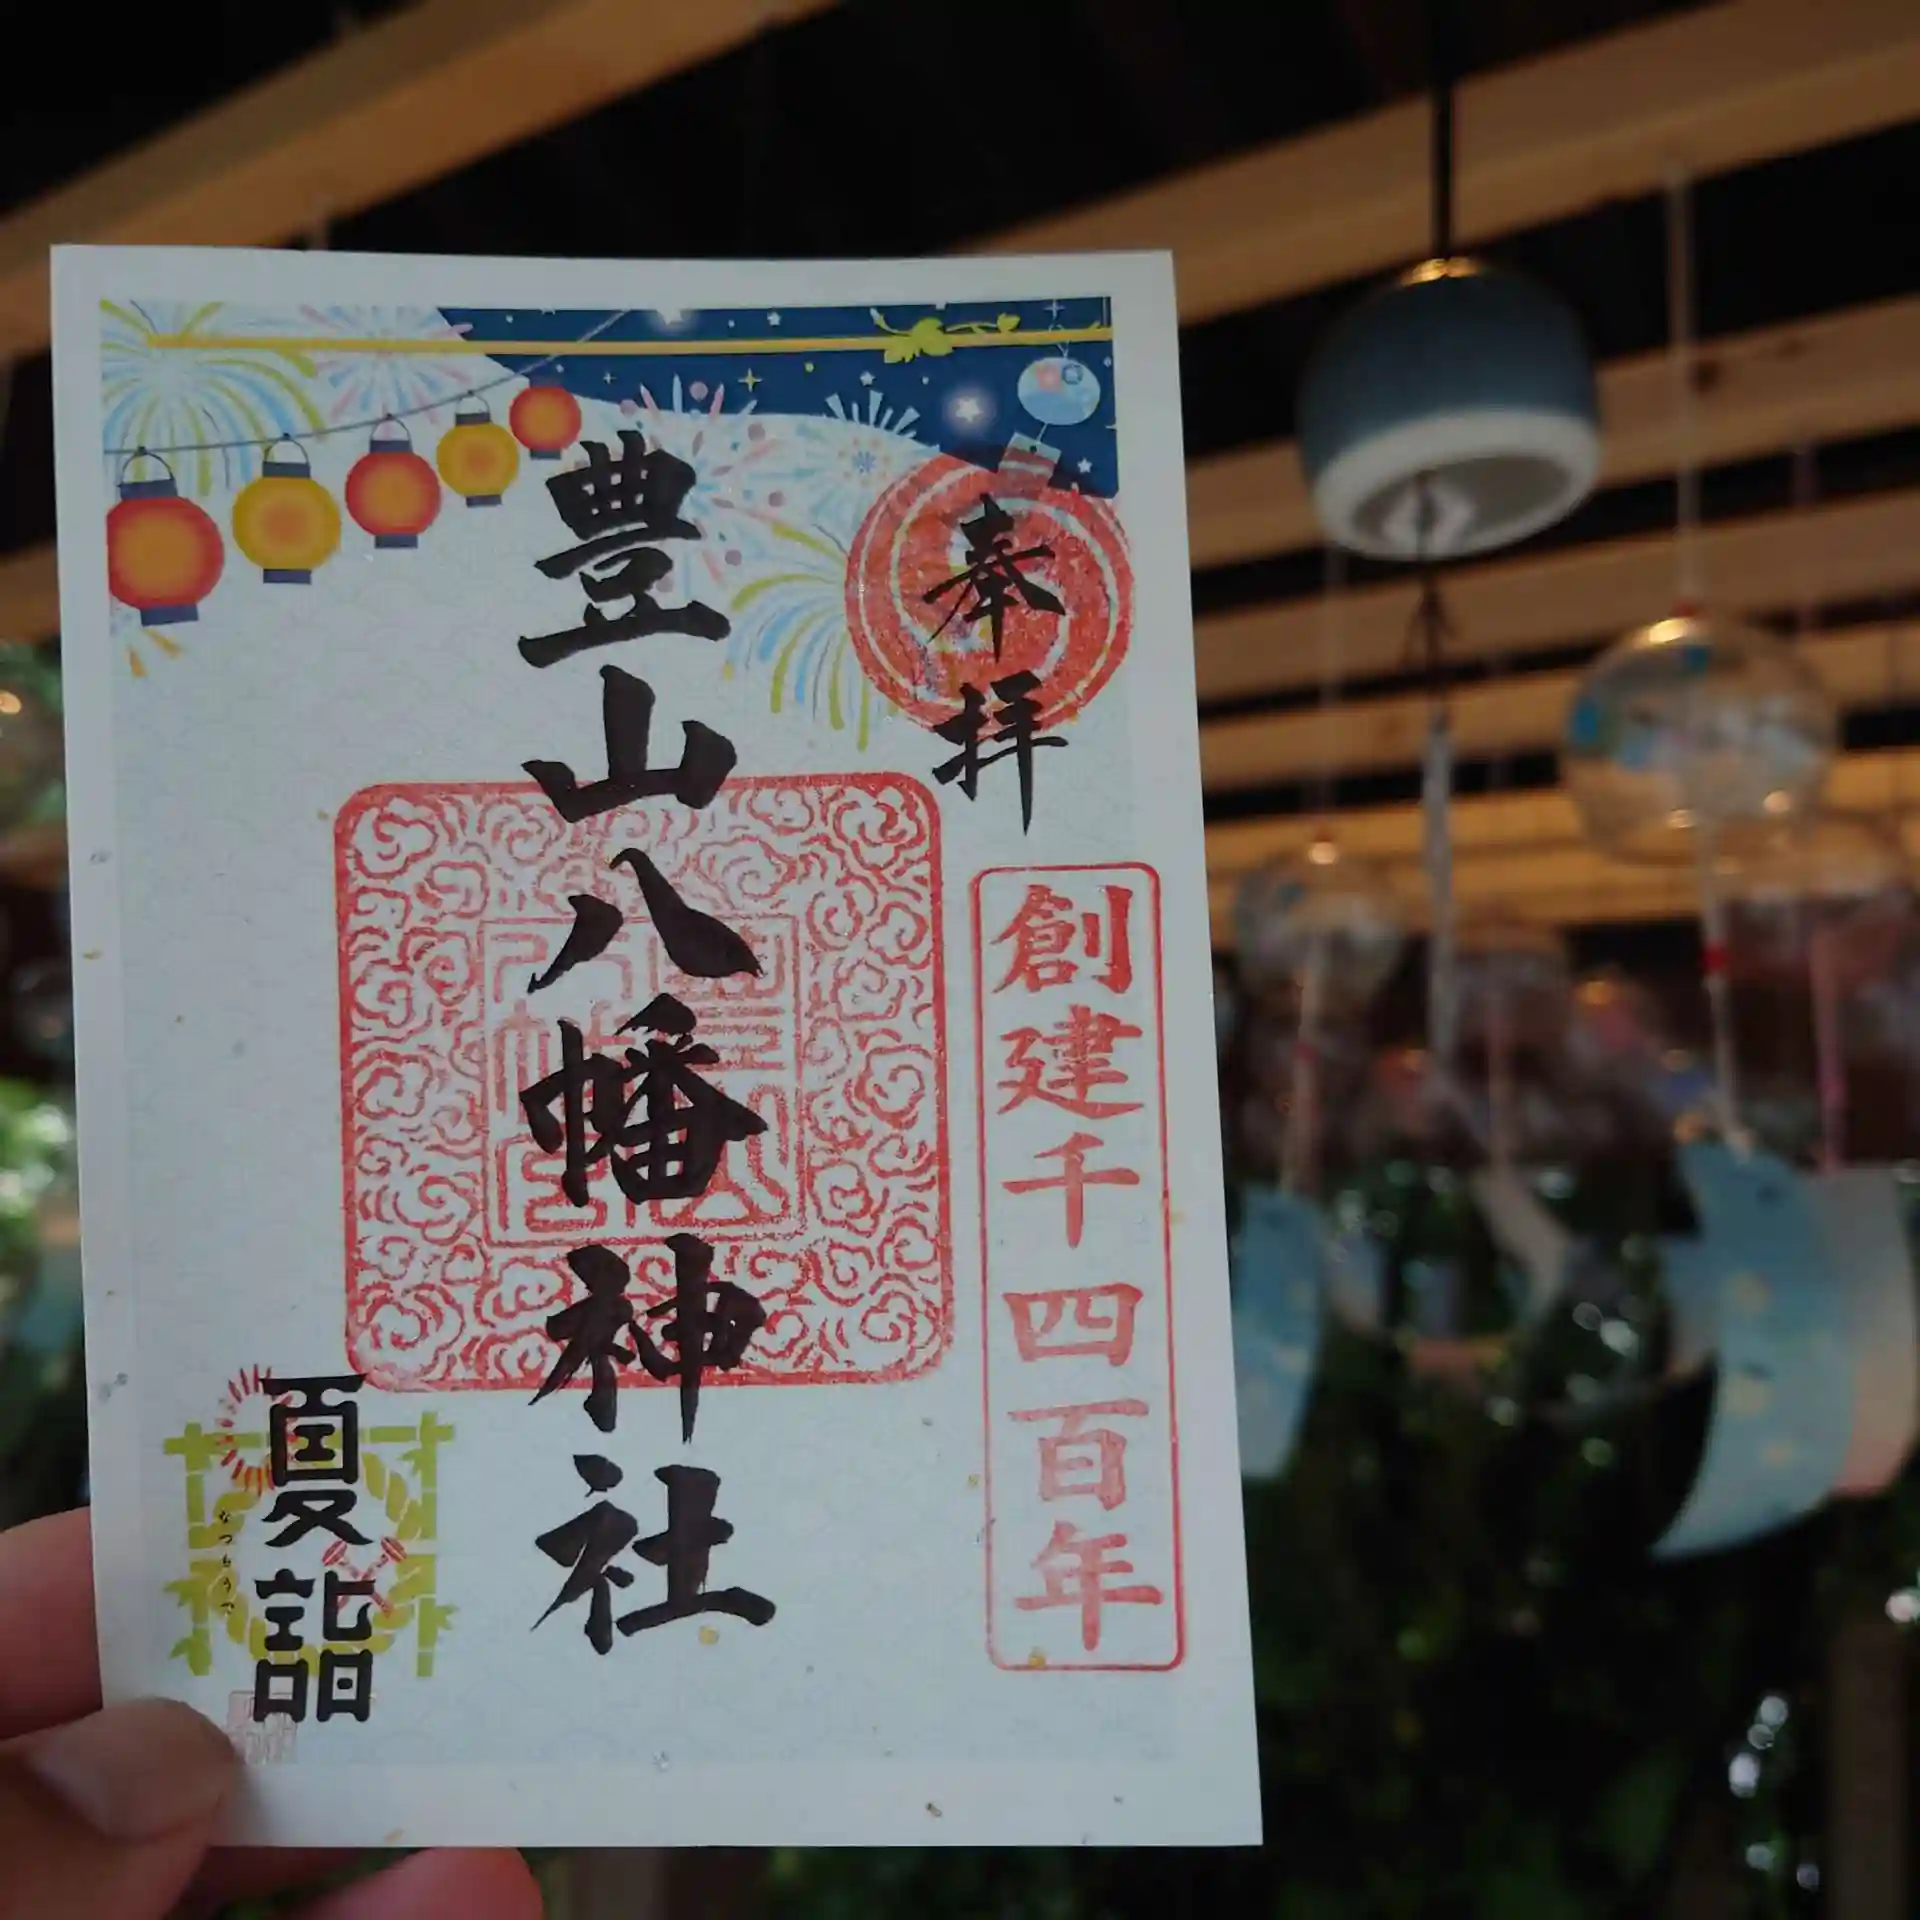 奉拝
創建千四百年
豊山八幡神社
夏詣
なつもうで